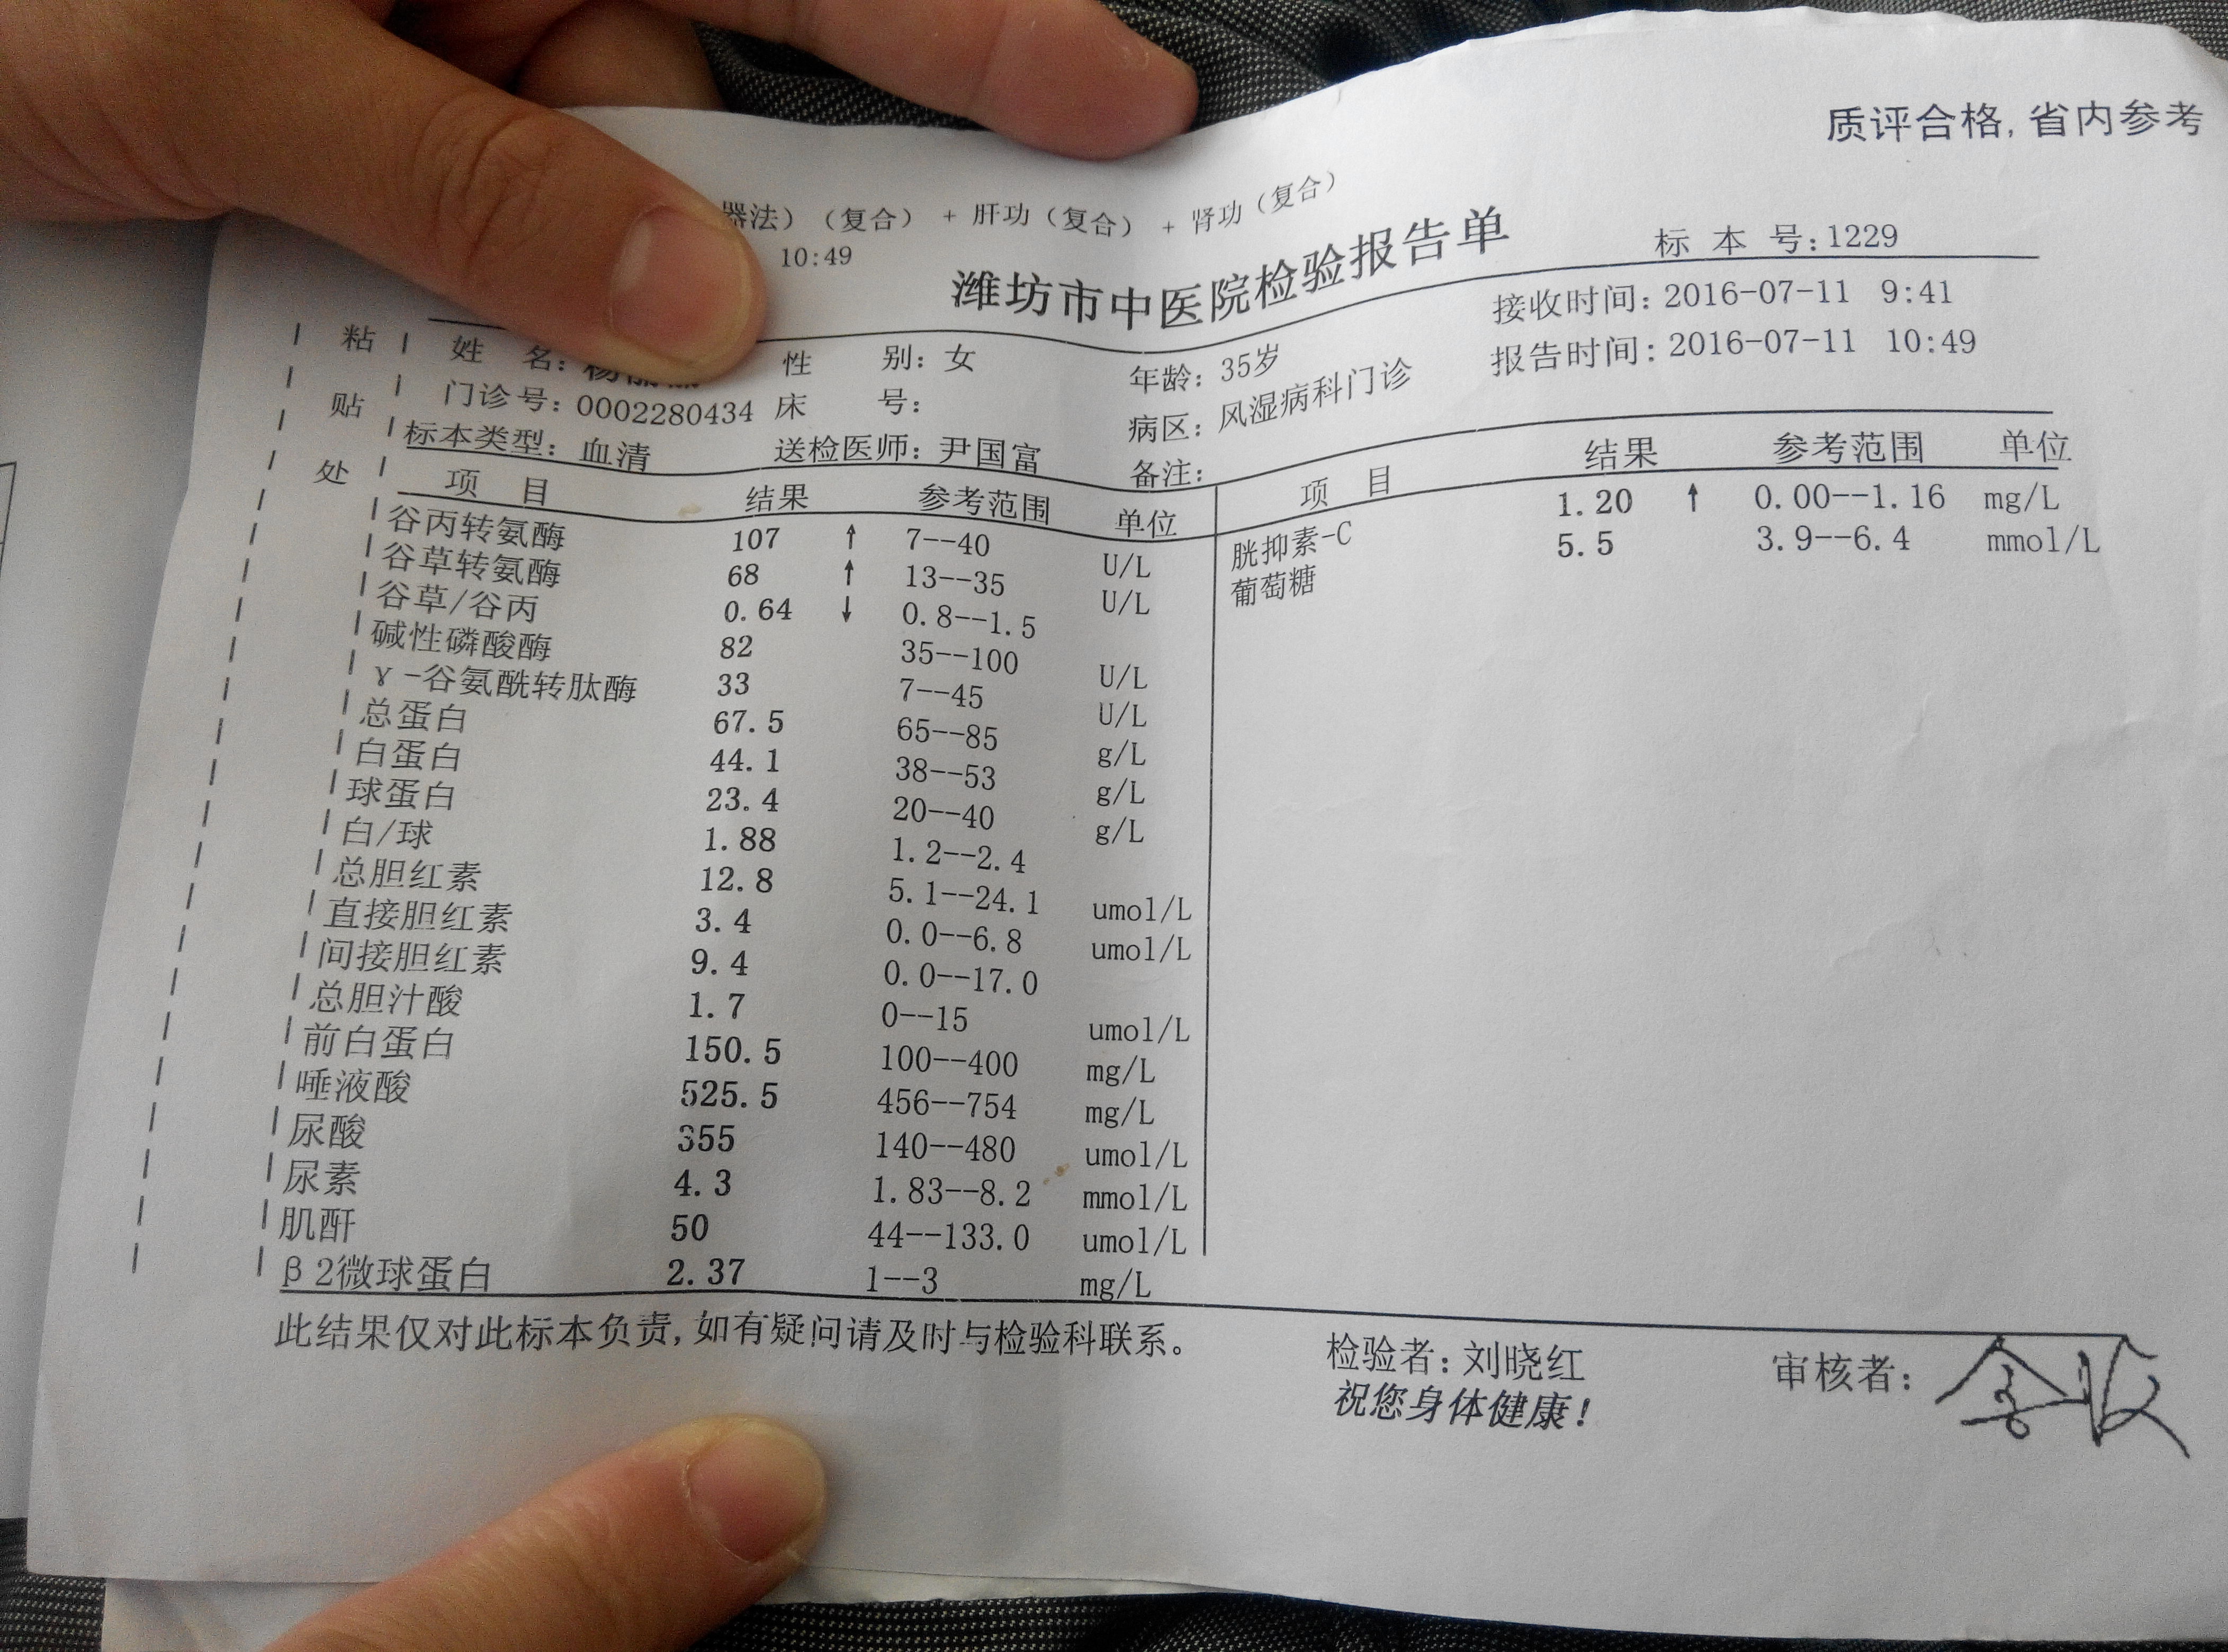 质评合格,省内参考
器法）（复合） + 肝功（复合） + 肾功（复合）
10:49
潍坊市中医院检验报告单
标 本 号:1229
接收时间:2016-07-11 9:41
报告时间:2016-07-11 10:49
姓 名: 性 别: 女 年龄: 35岁
门诊号: 0002280434 床 号: 病区: 风湿病科门诊
标本类型: 血清 送检医师: 尹国富 备注:
粘
贴
处
项 目 结果 参考范围 单位
谷丙转氨酶 107 ↑ 7--40 U/L
谷草转氨酶 68 ↑ 13--35 U/L
谷草/谷丙 0.64 ↓ 0.8--1.5
碱性磷酸酶 82 35--100 U/L
γ-谷氨酰转肽酶 33 7--45 U/L
总蛋白 67.5 65--85 g/L
白蛋白 44.1 38--53 g/L
球蛋白 23.4 20--40 g/L
白/球 1.88 1.2--2.4
总胆红素 12.8 5.1--24.1 umol/L
直接胆红素 3.4 0.0--6.8 umol/L
间接胆红素 9.4 0.0--17.0
总胆汁酸 1.7 0--15 umol/L
前白蛋白 150.5 100--400 mg/L
唾液酸 525.5 456--754 mg/L
尿酸 355 140--480 umol/L
尿素 4.3 1.83--8.2 mmol/L
肌酐 50 44--133.0 umol/L
β2微球蛋白 2.37 1--3 mg/L
项 目 结果 参考范围 单位
胱抑素-C 1.20 ↑ 0.00--1.16 mg/L
葡萄糖 5.5 3.9--6.4 mmol/L
此结果仅对此标本负责,如有疑问请及时与检验科联系。
检验者: 刘晓红
审核者:
祝您身体健康!